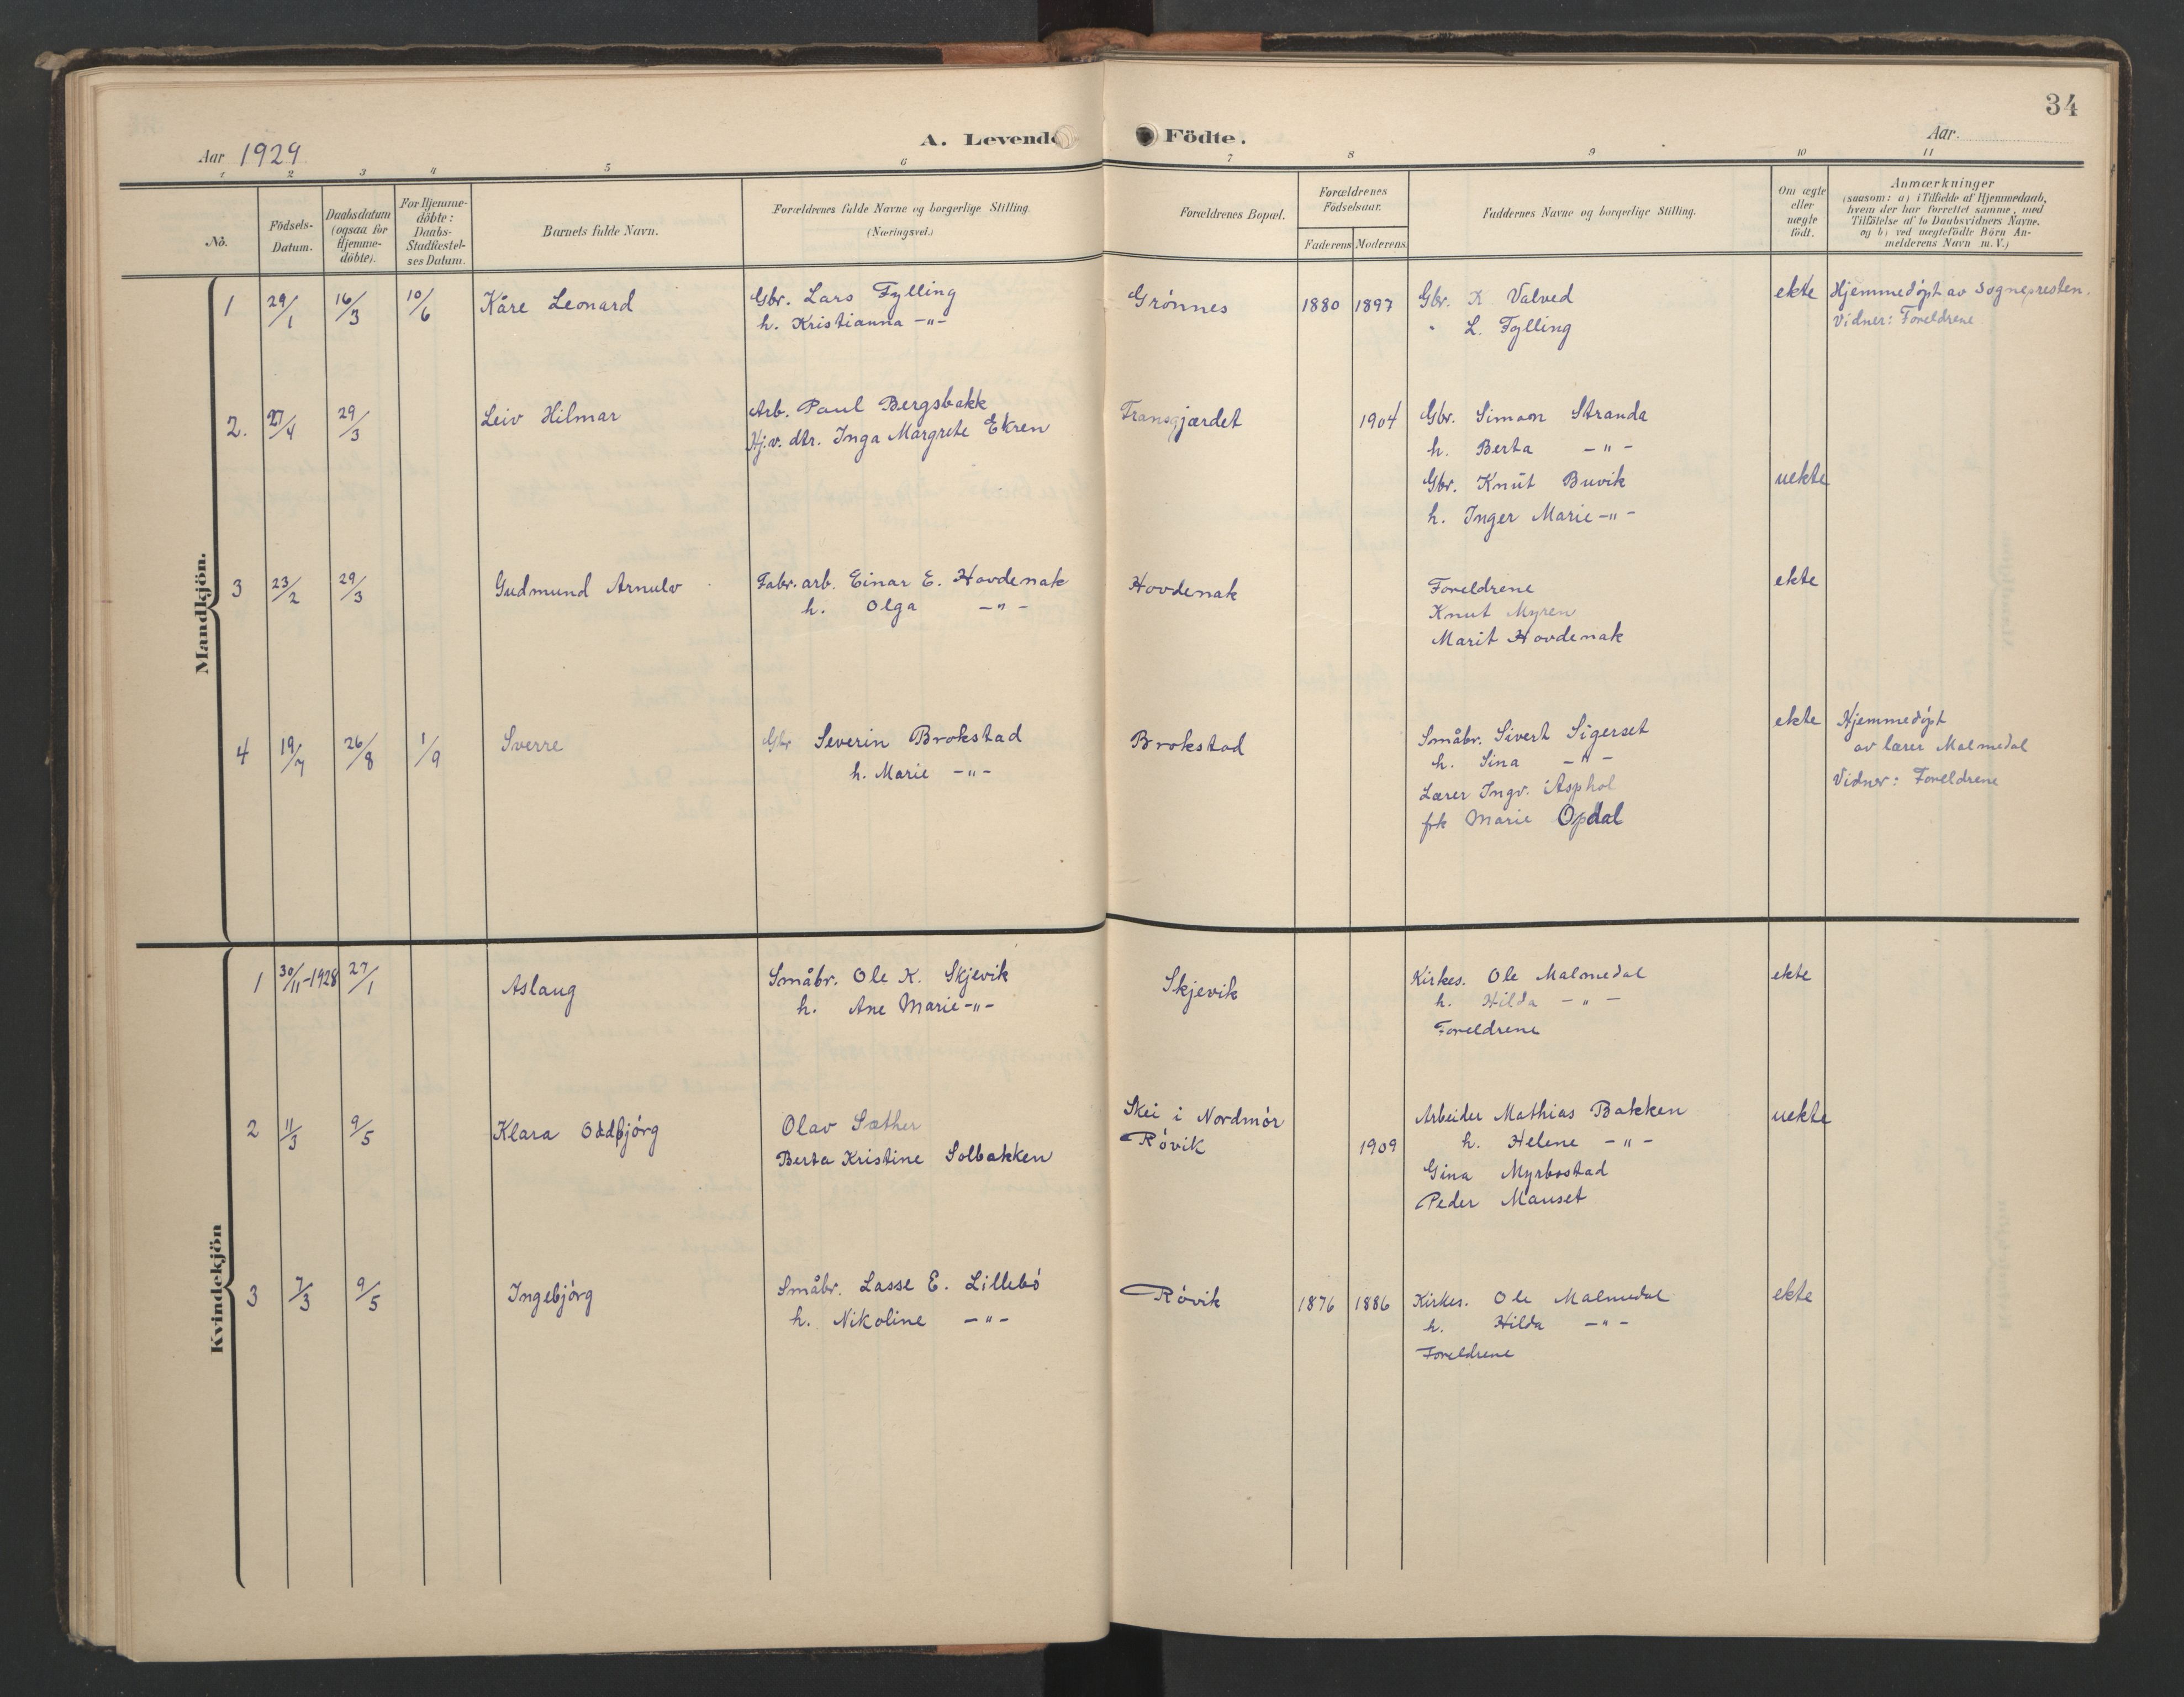 34
A. Levende Födte.
Aar 1929
Aar
1 2 3 4 5 6 7 8 9 10 11
No.
Födsels-Datum.
Daabsdatum (ogsaa for Hjemme-döbte).
For Hjemme-döbte: Daabs-Stadfæstel-ses Datum.
Barnets fulde Navn.
Forældrenes fulde Navne og borgerlige Stilling. (Næringsvei.)
Forældrenes Bopæl.
Forældrenes Födselsaar.
Faderens Moderens.
Faddernes Navne og borgerlige Stilling.
Om ægte eller uægte födt.
Anmærkninger
(saasom: a) i Tilfælde af Hjemmedaab,
hvem der har forrettet samme, med
Tilföielse af to Daabsvidners Navne.
og b) ved uægtefödte Börn An-
melderens Navn m. V.)
Mandkjön.
1 29/1 16/3 10/6 Kåre Leonard Gbr. Lars Fylling Grónnes 1880 1897 Gbr. K Valved ekte Hjemmedópt av Sognepresten.
h. Kristianna -"- " L. Fylling Vidner: Foreldrene
2. 27/4 29/3 Leiv Hilmar Arb. Paul Bergsbakk Transgjærdet 1904 Gbr. Simon Stranda
Hj.v. dtr. Inga Margrete Ekren h. Berta -"-
Gbr. Knut Buvik uekte
h. Inger Marie -"-
3 23/2 29/3 Gudmund Arnulv Fabr. arb. Einar E. Hovdenak Hovdenak Foreldrene ekte
h. Olga -"- Knut Myren
Marit Hovdenak
4 19/7 26/8 1/9 Sverre Gbr Severin Brokstad Brokstad Småbr. Sivert Sigerset ekte Hjemmedópt
h. Marie -"- h. Sina -"- av lærer Malmedal
Lærer Ingv. Asphol Vidner: Foreldrene
frk Marie Opdal
Kvindekjön
1 30/11-1928 27/1 Aslaug Småbr. Ole K. Skjevik Skjevik Kirkes. Ole Malmedal ekte
h. Ane Marie -"- h. Hilda -"-
Foreldrene
2 11/3 9/5 Klara Oddbjórg Olav Sæther Skei i Nordmór Arbeider Mathias Bakken uekte
Berta Kristine Solbakken Róvik 1909 h. Helene -"-
Gina Myrbostad
Peder Mauset
3 7/3 9/5 Ingebjórg Småbr. Lasse E. Lillebó Róvik 1876 1886 Kirkes. Ole Malmedal ekte
h. Nikoline -"- h. Hilda -"-
Foreldrene